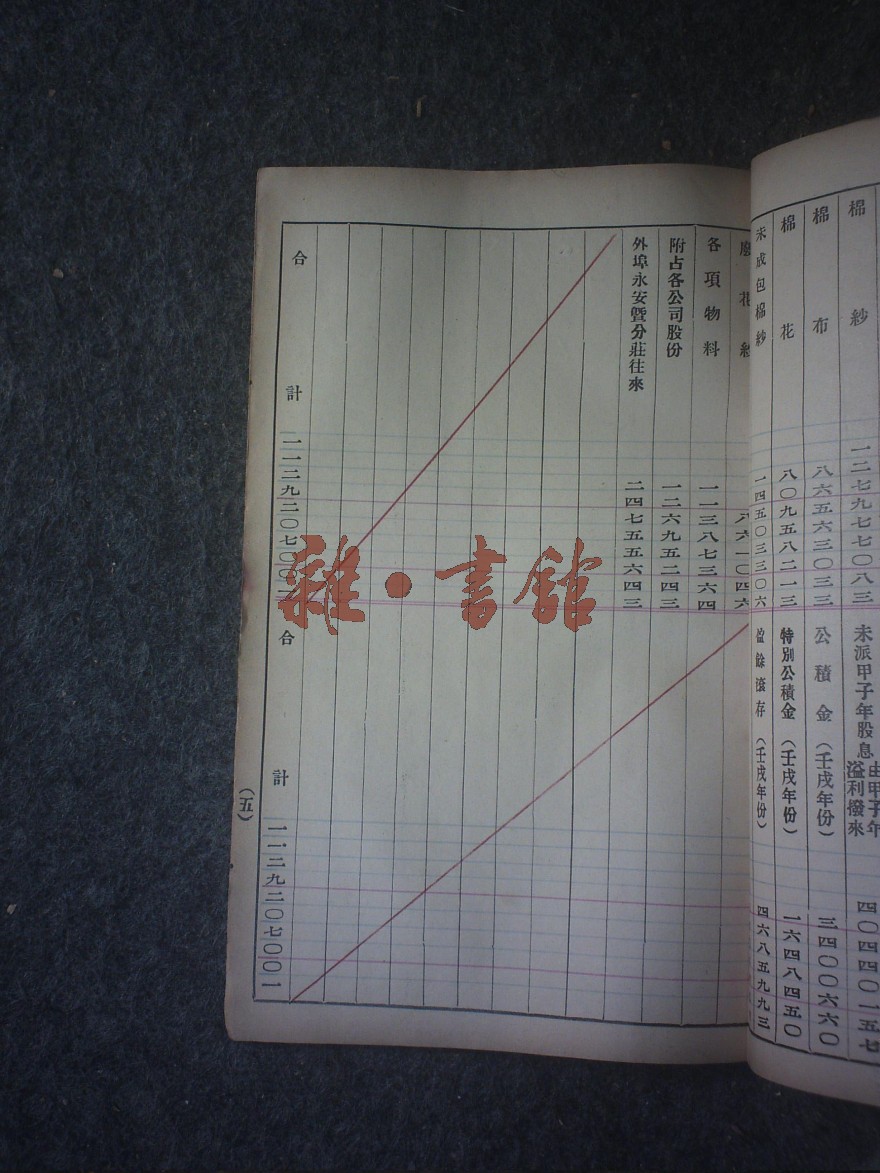 棉紗 一二七九七七〇八三
棉布 八六五六三〇三三
棉花 八〇九五八二一三
未成包棉紗 一四五〇三三〇六
廢花紗 八六一〇四六
各項物料 一一三八七三六四
附占各公司股份 一二六九五二四三
外埠永安暨分莊往來 二四七五五六四三
合計 一一二九二〇七〇〇
未派甲子年股息 由甲子年溢利撥來 四〇四四〇一五七
公積金(壬戌年份) 三四〇〇六六〇
特別公積金(壬戌年份) 一六四八四五〇
盈餘滾存(壬戌年份) 四六八五九九三
合計 一一二九二〇七〇〇一
(五)
雜·書館